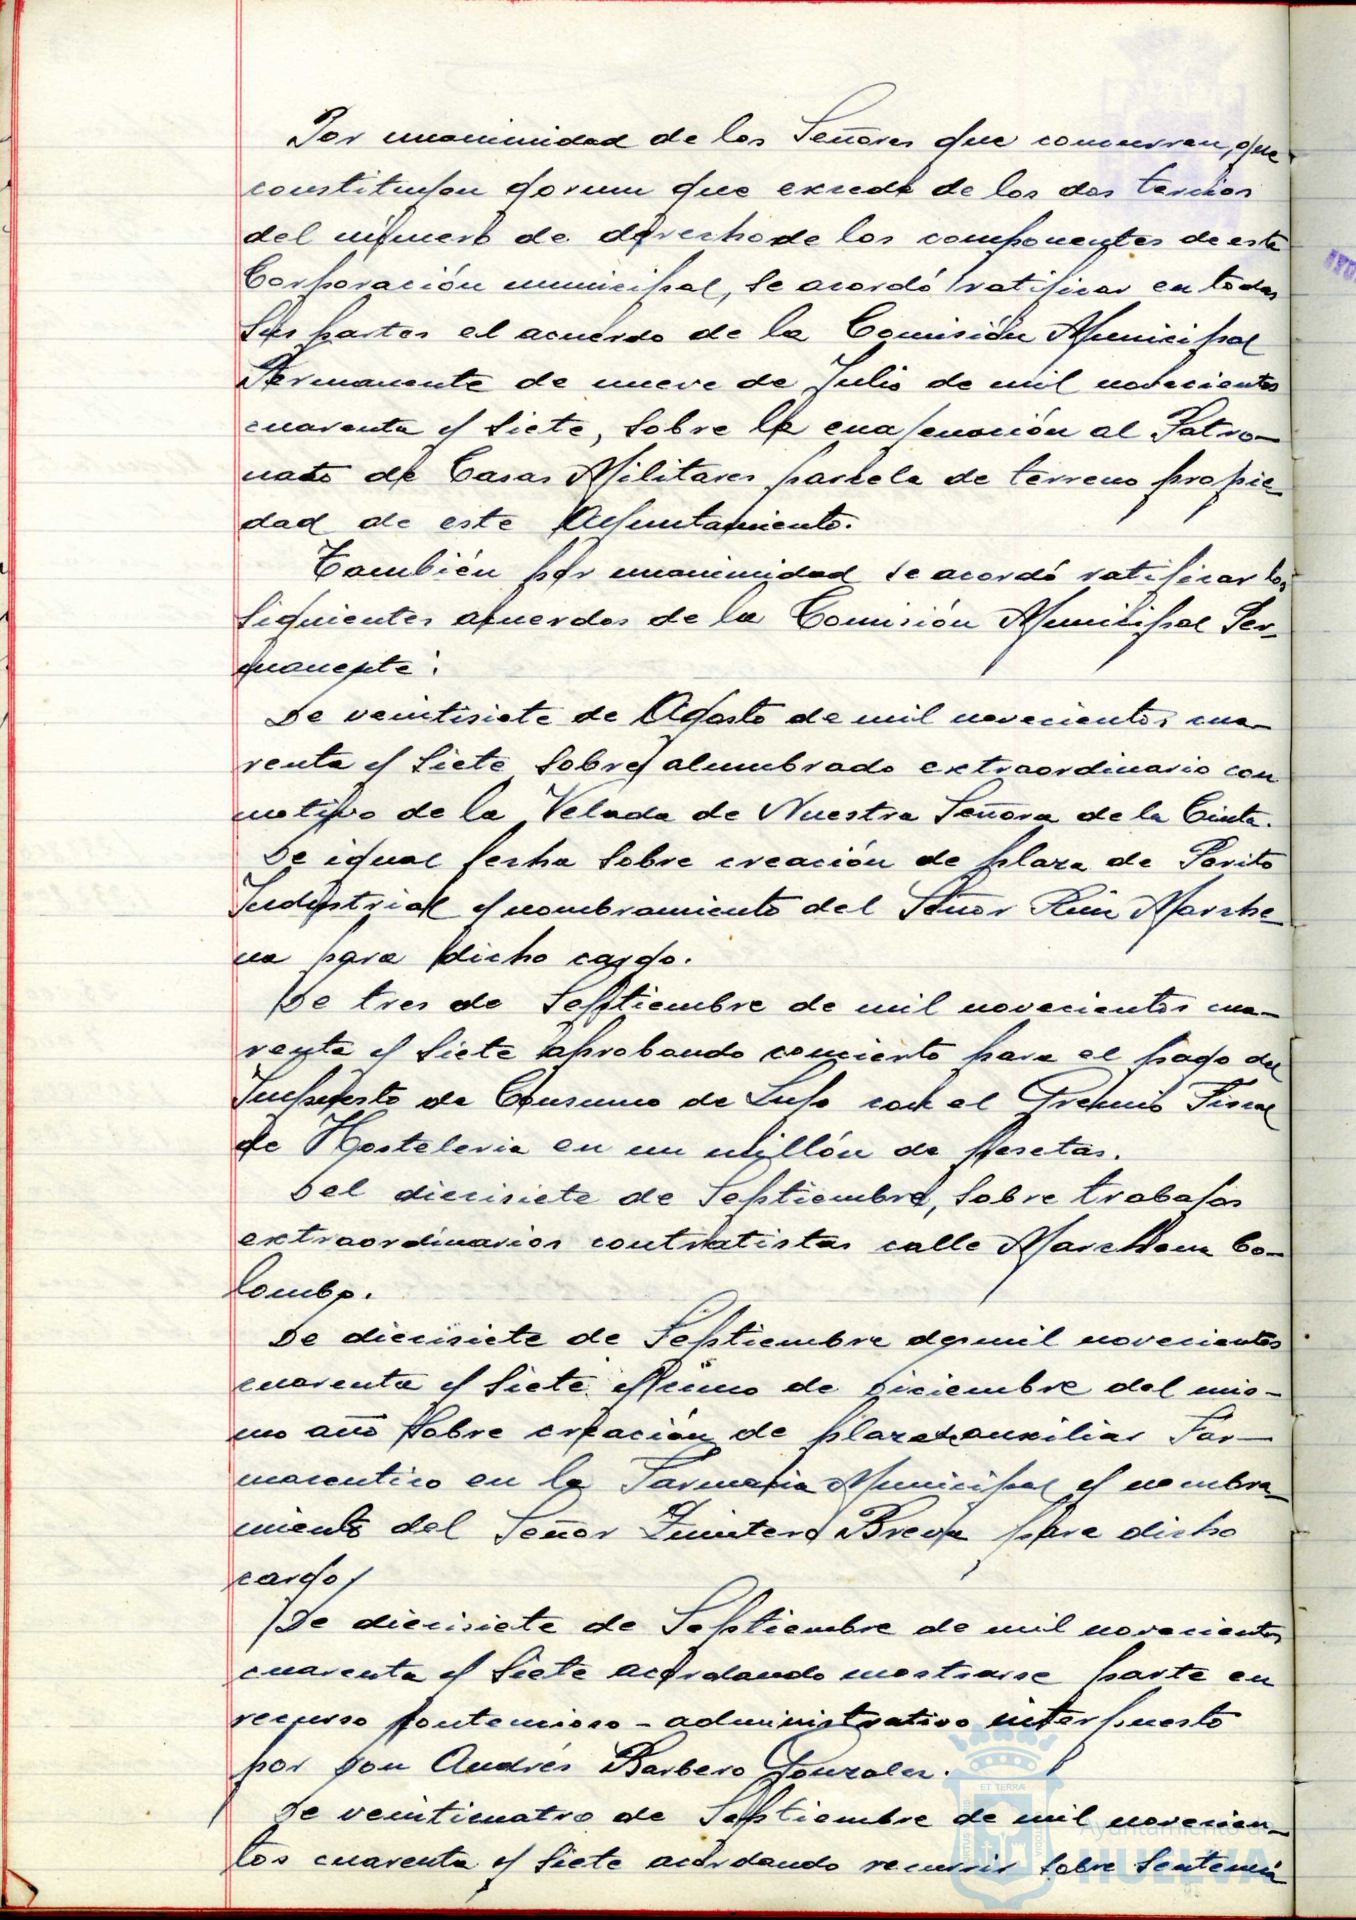 Por unanimidad de los Señores que concurren, que
constituyen qorum que excede de los dos tercios
del número de derecho de los componentes de esta
Corporación municipal, se acordó ratificar en todas
sus partes el acuerdo de la Comisión Municipal
Permanente de nueve de Julio de mil novecientos
cuarenta y siete, sobre la enajenación al Patro-
nato de Casas Militares parcela de terreno propie-
dad de este Ayuntamiento.
También por unanimidad se acordó ratificar los
siguientes acuerdos de la Comisión Municipal Per-
manente:
De veintisiete de Agosto de mil novecientos cua-
renta y siete sobre alumbrado extraordinario con
motivo de la Velada de Nuestra Señora de la Cinta.
De igual fecha sobre creación de plaza de Perito
Industrial y nombramiento del Señor Ruiz Marche-
na para dicho cargo.
De tres de Septiembre de mil novecientos cua-
renta y siete aprobando concierto para el pago del
Impuesto de Consumo de Lujo con el Gremio Fiscal
de Hosteleria en un millón de pesetas.
Del diecisiete de Septiembre, sobre trabajos
extraordinarios contratistas calle Marchena Co-
lombo.
De diecisiete de Septiembre de mil novecientos
cuarenta y siete y de diciembre del mis-
mo año sobre creación de plaza de auxiliar Far-
maceutico en la Farmacia Municipal y nombra-
miento del Señor Quintero Breva para dicho
cargo,
De diecisiete de Septiembre de mil novecientos
cuarenta y siete acordando mostrarse parte en
recurso contencioso-administrativo interpuesto
por don Andrés Barbero Gonzalez.
De veinticuatro de Septiembre de mil novecien-
tos cuarenta y siete acordando recurrir sobre sentencia
ET TERRÆ
Ayuntamiento de
HUELVA